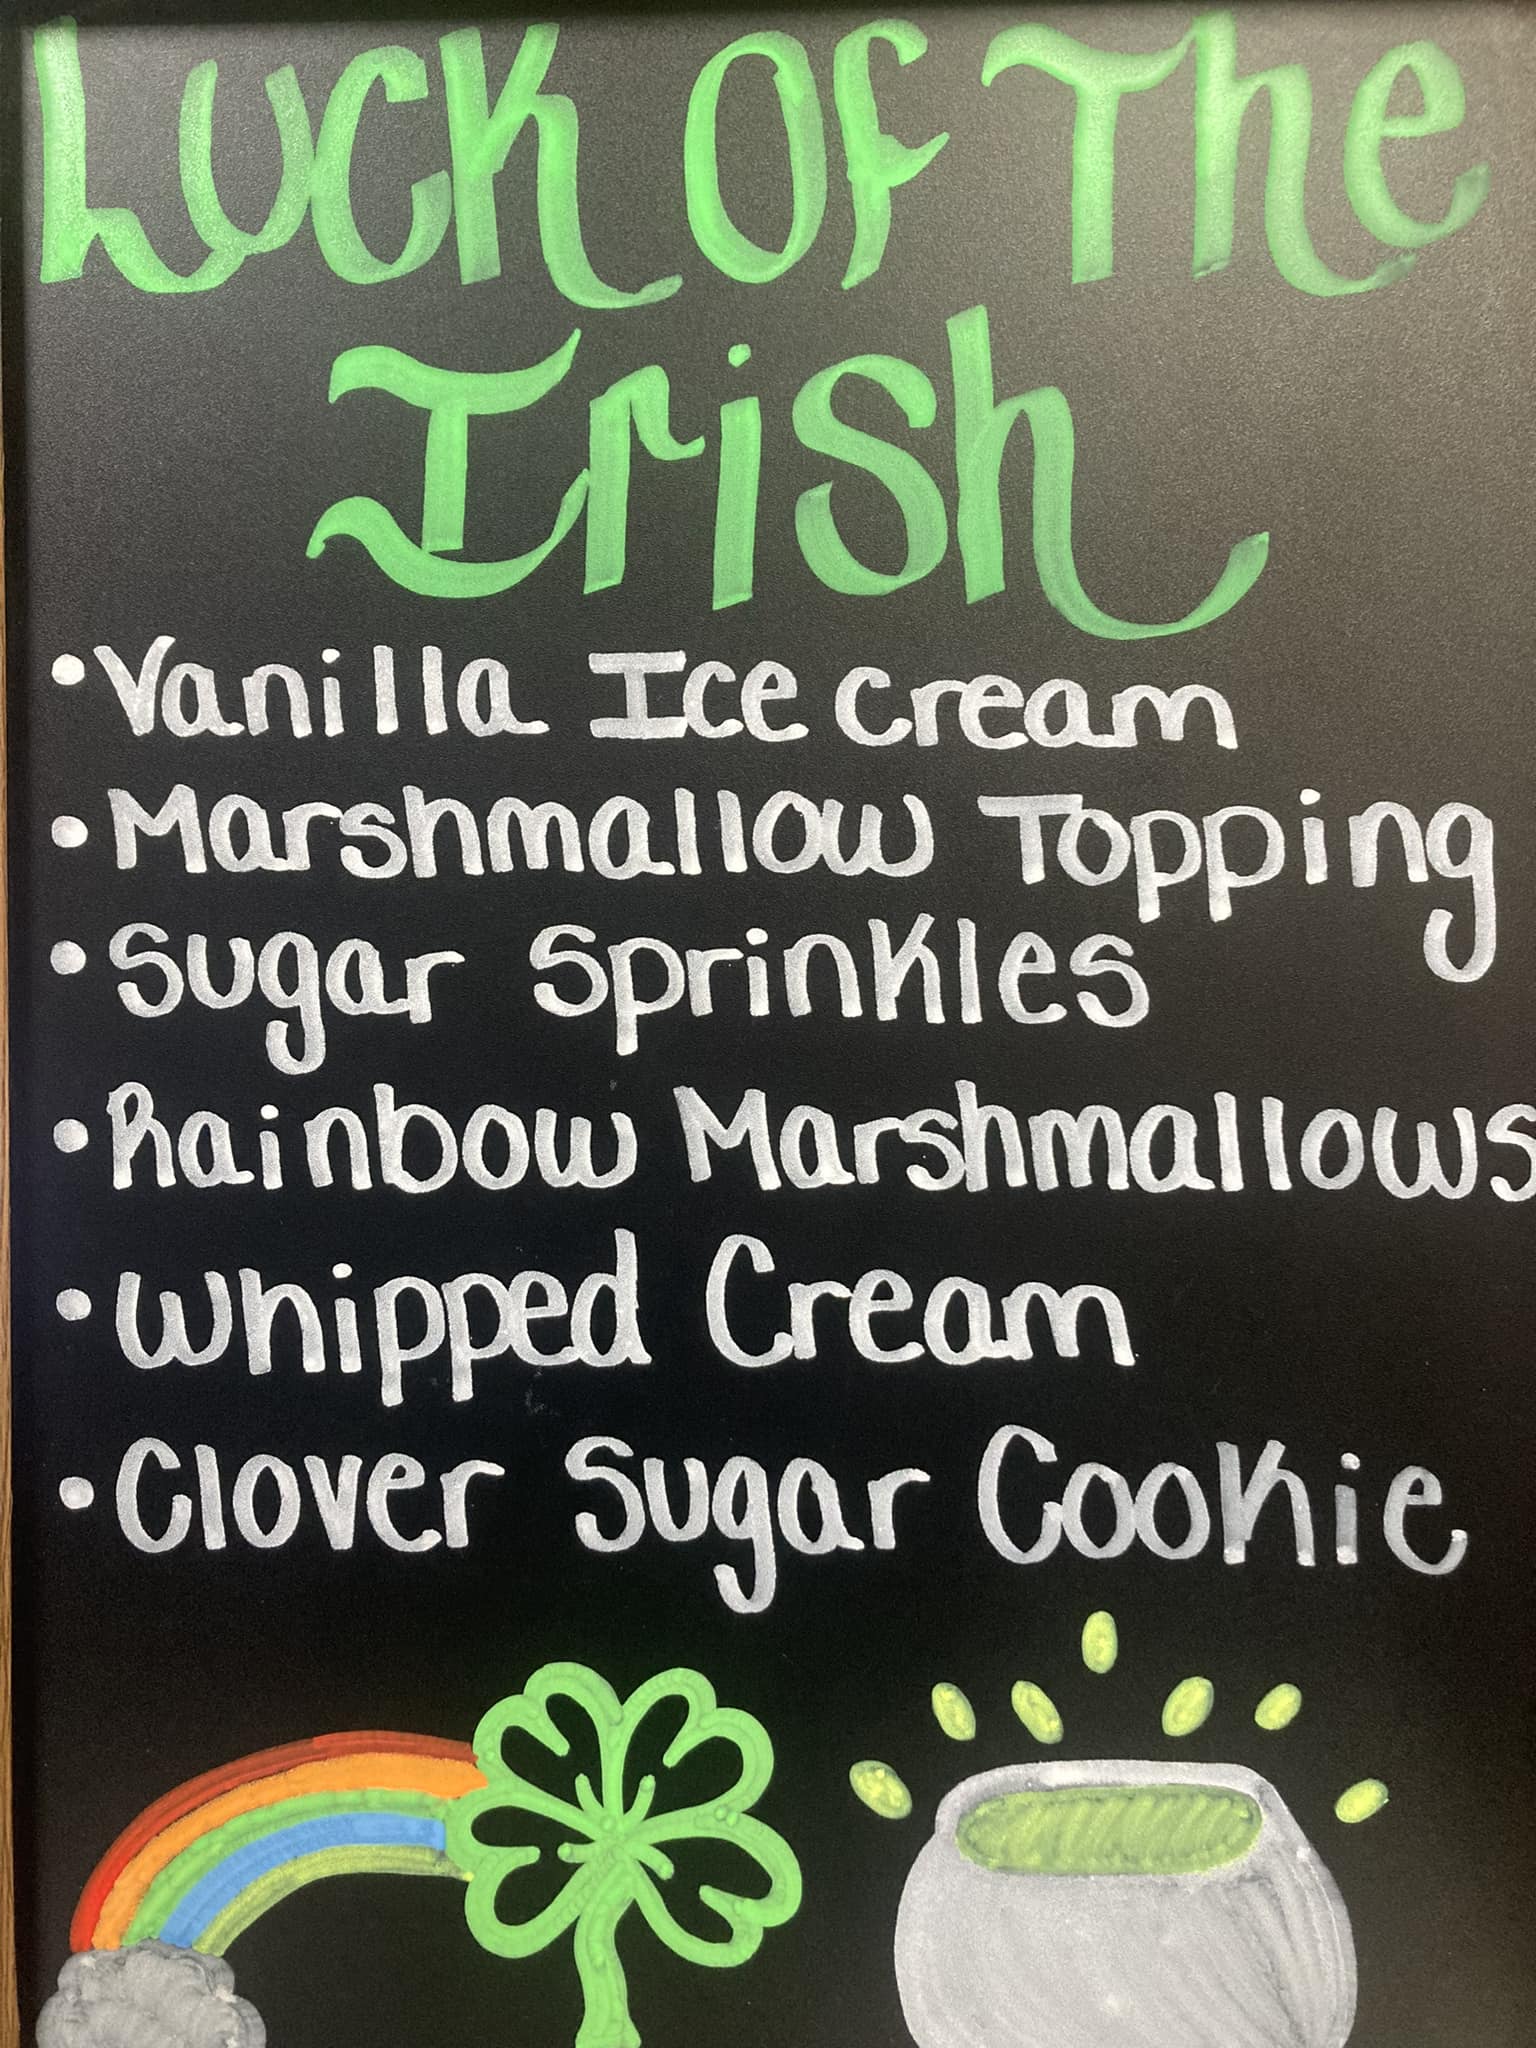 Luck Of The
Irish
• Vanilla Ice cream
• Marshmallow Topping
• Sugar Sprinkles
• Rainbow Marshmallows
• Whipped Cream
• Clover Sugar Cookie